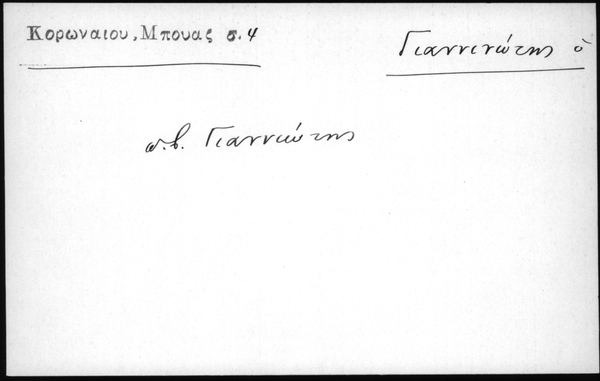 Κορωναιου, Μπουας σ. 4
Γιαννινώτης ὁ
π.β. Γιαννιώτης